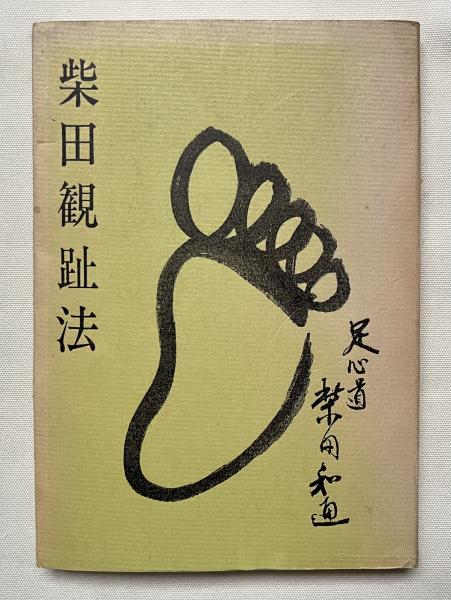 柴田観趾法
足心道
柴田和通